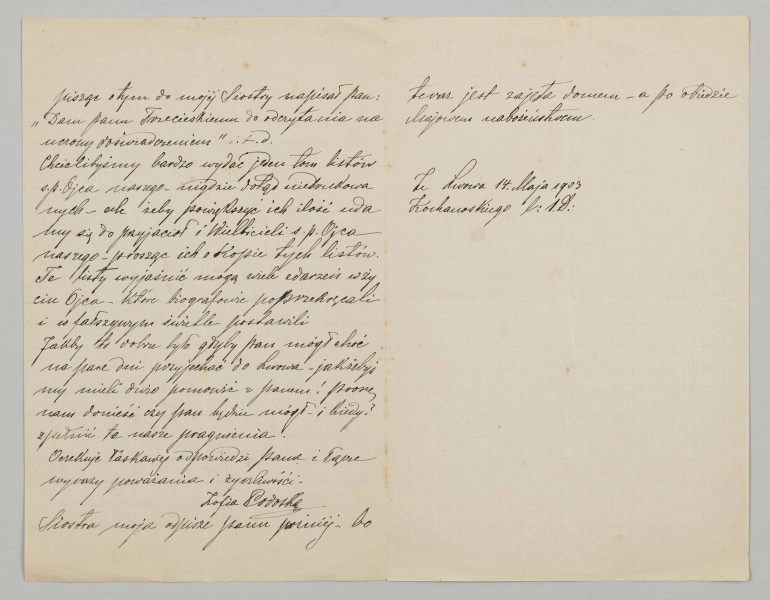 pisząc o tym do mojéj Siostry napisał pan:
„Dam panu Trzecieskiemu do odczytania na
uczony doświadczeniem" i.t.d.
Chcielibyśmy bardzo wydać jeden tom listów
s.p. Ojca naszego - nigdzie dotąd niedrukowa
nych - ale żeby powiększyć ich ilość uda
my się do przyjaciół i Wielbicieli s.p. Ojca
naszego - prosząc ich o kopie tych listów.
Te listy wyjaśnić mogą wiele zdarzeń w ży
ciu Ojca - które biografowie poprzekręcali
i w fałszywym świetle postawili.
Jakby to dobrze było gdyby pan mógł choć
na parę dni przyjechać do Lwowa - jakżebyś
my mieli dużo pomówić z panem! proszę
nam donieść czy pan będzie mógł - i kiedy?
spełnić te nasze pragnienia.
Oczekuję łaskawej odpowiedzi pana i łączę
wyrazy poważania i życzliwości.
Zofia Podoska
Siostra moja odpisze panu później - bo
teraz jest zajęta domem - a po obiedzie
Majowem nabożeństwem.
Ze Lwowa 14. Maja 1903
Kochanoskiego